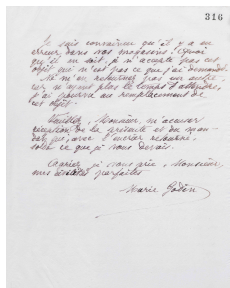 316
Je suis convaincue qu'il y a eu
erreur dans vos magasins. Quoi
qu'il en soit, je n'accepte pas cet
objet qui n'est pas ce que j'ai demandé.
Ne m'en adressez pas un autre
car n'ayant plus le temps d'attendre,
j'ai pourvu au remplacement de
cet objet.
Veuillez, Monsieur, m'accuser
réception de la présente et du
que j'avec
solde ce que je vous devais.
Agréez, je vous prie, Monsieur,
mes parfaites
Marie Godin